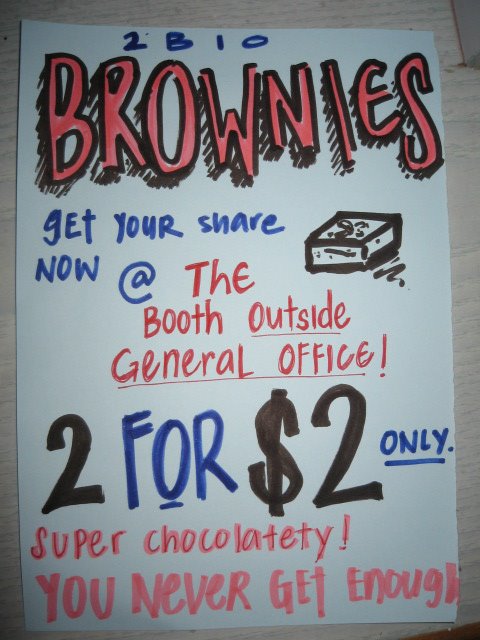 2 B I O
BROWNIES
GET YOUR share
NOW @ The
Booth Outside
General OFFICE!
2 FOR $2 ONLY.
Super chocolatety!
YOU NEVER GET Enough